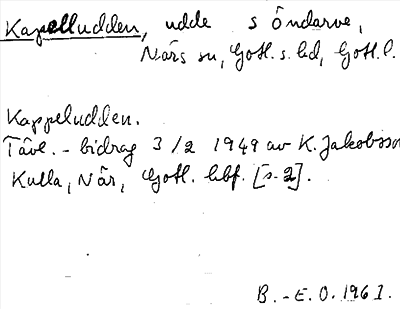 Kapelludden, udde s Öndarve,
Närs sn, Gotl. s. hd, Gotl. l.
Kappeludden.
Tävl. - bidrag 3/2 1949 av K. Jakobsson
Kulla, När, Gotl. hbf. [s. 2].
B. - E. O. 1961.